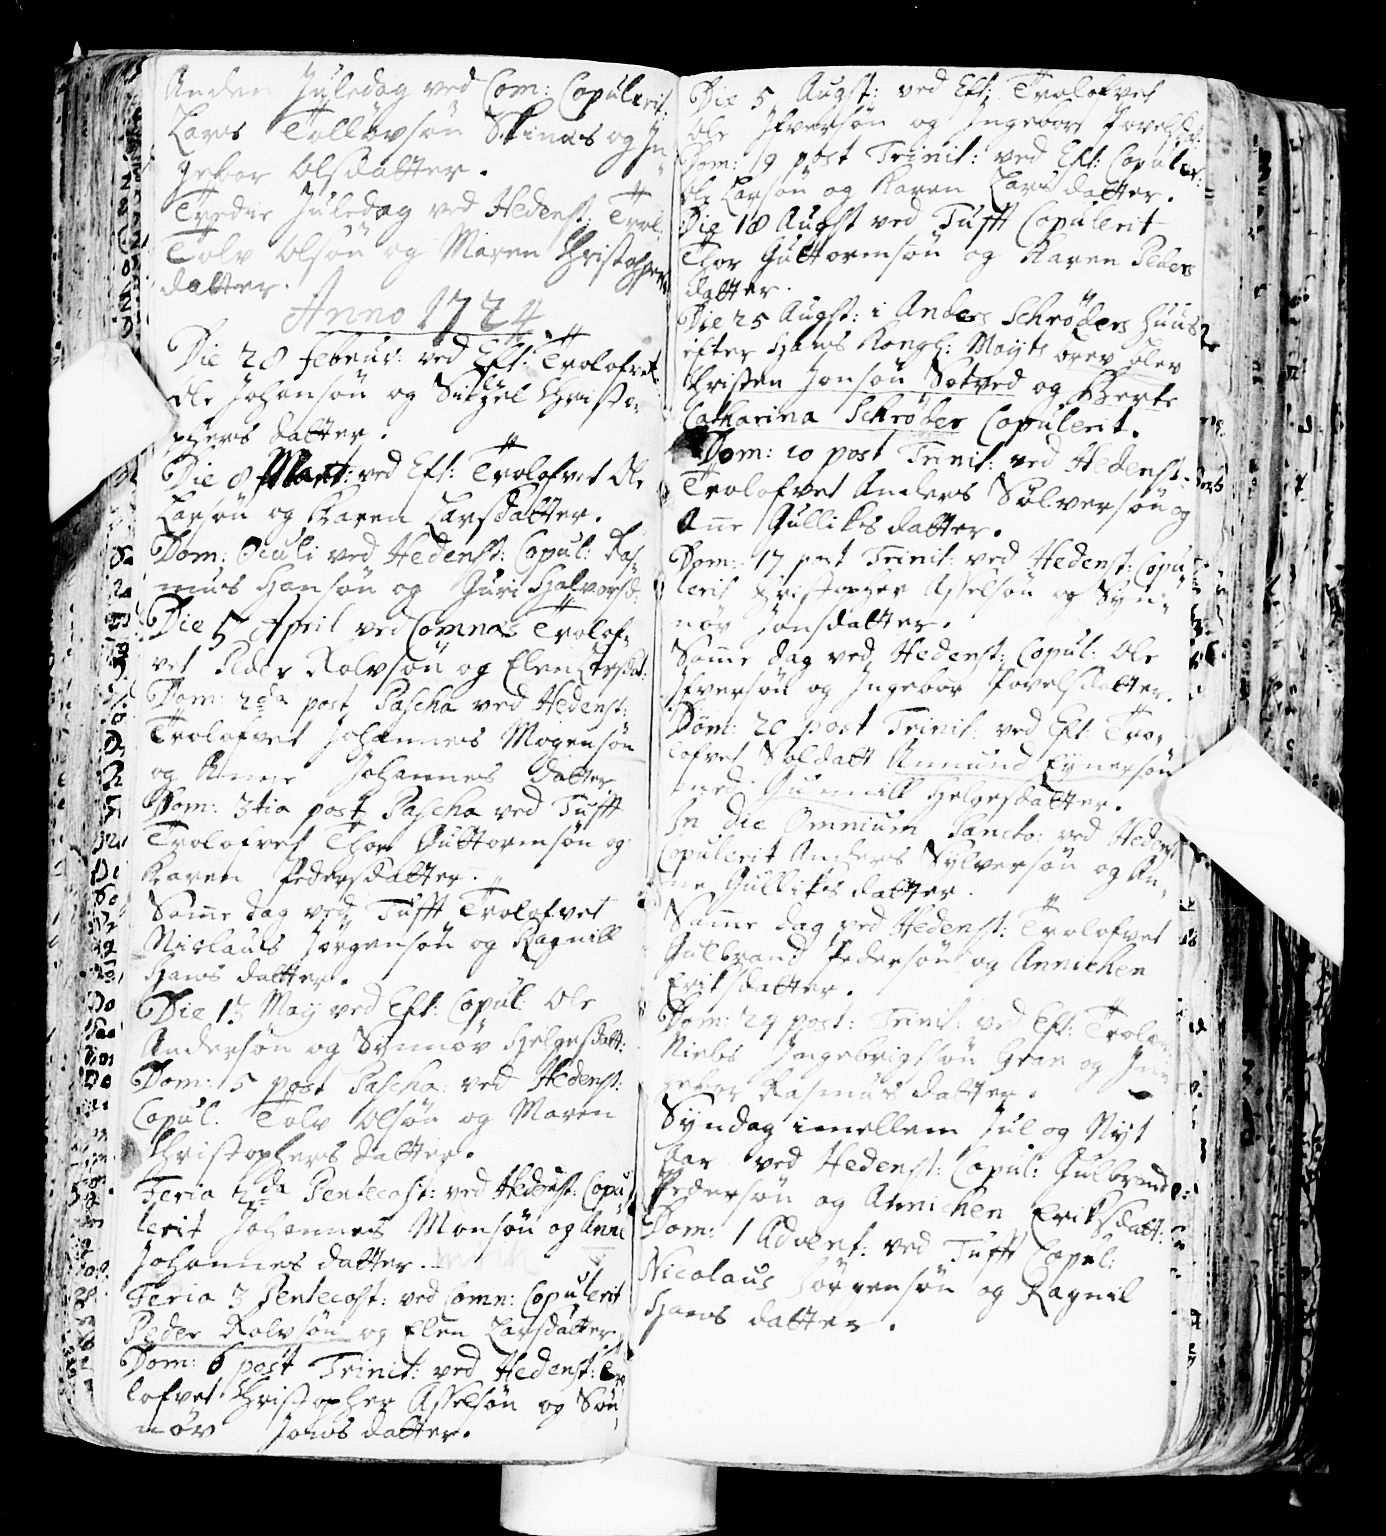 Anden Juledag ved Com: Copulerit
Lars Tollövsön Skinæs og In-
gebor Olsdatter.
Tredie Juledag ved Hedenst: Trol.
Tolv Olsön og Maren Christopher
datter.
Anno 1724
Die 28 Februr: ved Eft: Trolofvet
Ole Johansön og Sitzel Christo-
phers datter.
Die 8 Mart: ved Eft: Trolofvet Ole
Larsön og Karen Larsdatter.
Dom: Oculi ved Hedenst: Copul: Ras-
mus Hansön og Guri Halvorsd:
Die 5 April ved Comnæs Trolof-
vet Peder Rolvsön og Elen Larsdat:
Dom: 2da post Pascha ved Hedenst:
Trolofvet Johannes Mogensön
og Anne Johannes datter
Dom: 3tia post Pascha ved Tufft
Trolofvet Thor Guttormsön og
Karen Pedersdatter.
Samme dag ved Tufft Trolofvet
Niclaus Jörgensön og Ragnill
Hans datter.
Die 13 May ved Eft: Copul: Ole
Andersön og Synnöv Helgesdatt:
Dom: 5 post Pascha: ved Hedenst:
Copul: Tolv Olsön og Maren
Christophers datter.
Feria 2da Pentecost: ved Hedenst: Copu
lerit Johannes Monsön og Anne
Johannes datter.
Feria 3 Pentecost: ved Comn: Copulerit
Peder Rolvsön og Elen Larsdatter
Dom: 6 post Trinit: ved Hedenst: Tro
lofvet Christopher Asselsön og Sön
növ Jons datter.
Die 5 Augst: ved Eft: Trolofvet
Ole Ifversön og Ingebor Povelsd:
Dom: 9 post Trinit: ved Eft: Copuler:
Ole Larsön og Karen Lars datter.
Die 18 Augst ved Tufft Copulerit
Thor Guttormsön og Karen Peders
datter.
Die 25 Augst: i Anders Schrøders Huus
efter Hans Kongl: Mayts brev blev
Christen Jonsön Sotved og Berte
Catharina Schrøder Copulerit.
Dom: 10 post Trinit: ved Hedenst:
Trolofvet Anders Sölversön og
Anne Gulliks datter.
Dom: 17 post Trinit: ved Hedenst: Copu
lerit Christopher Asselsön og Syn-
növ Jonsdatter.
Samme dag ved Hedenst: Copul: Ole
Ifversön og Ingebor Povelsdatter.
Dom: 20 post Trinit: ved Eft: Tro-
lofvet Soldatt Amund Eynersön
med Gunnill Helgesdatter.
In Die Omnium Sancto: ved Hedenst
Copulerit Anders Sylversön og An-
ne Gulliks datter.
Samme dag ved Hedenst: Trolofvet
Gulbrand Pedersön og Annichen
Eriksdatter.
Dom: 24 post: Trinit: ved Eft: Trolov:
Niels Ingebrigtsön Gran og In-
gebor Rasmus datter.
Syndag imellem Jul og Nyt
Aar ved Hedenst: Copul: Gulbrand
Pedersön og Annichen Eriksdatt:
Dom: 1 Advent: ved Tufft Copul:
Nicolaus Jörgensön og Ragnil
Hans datter.